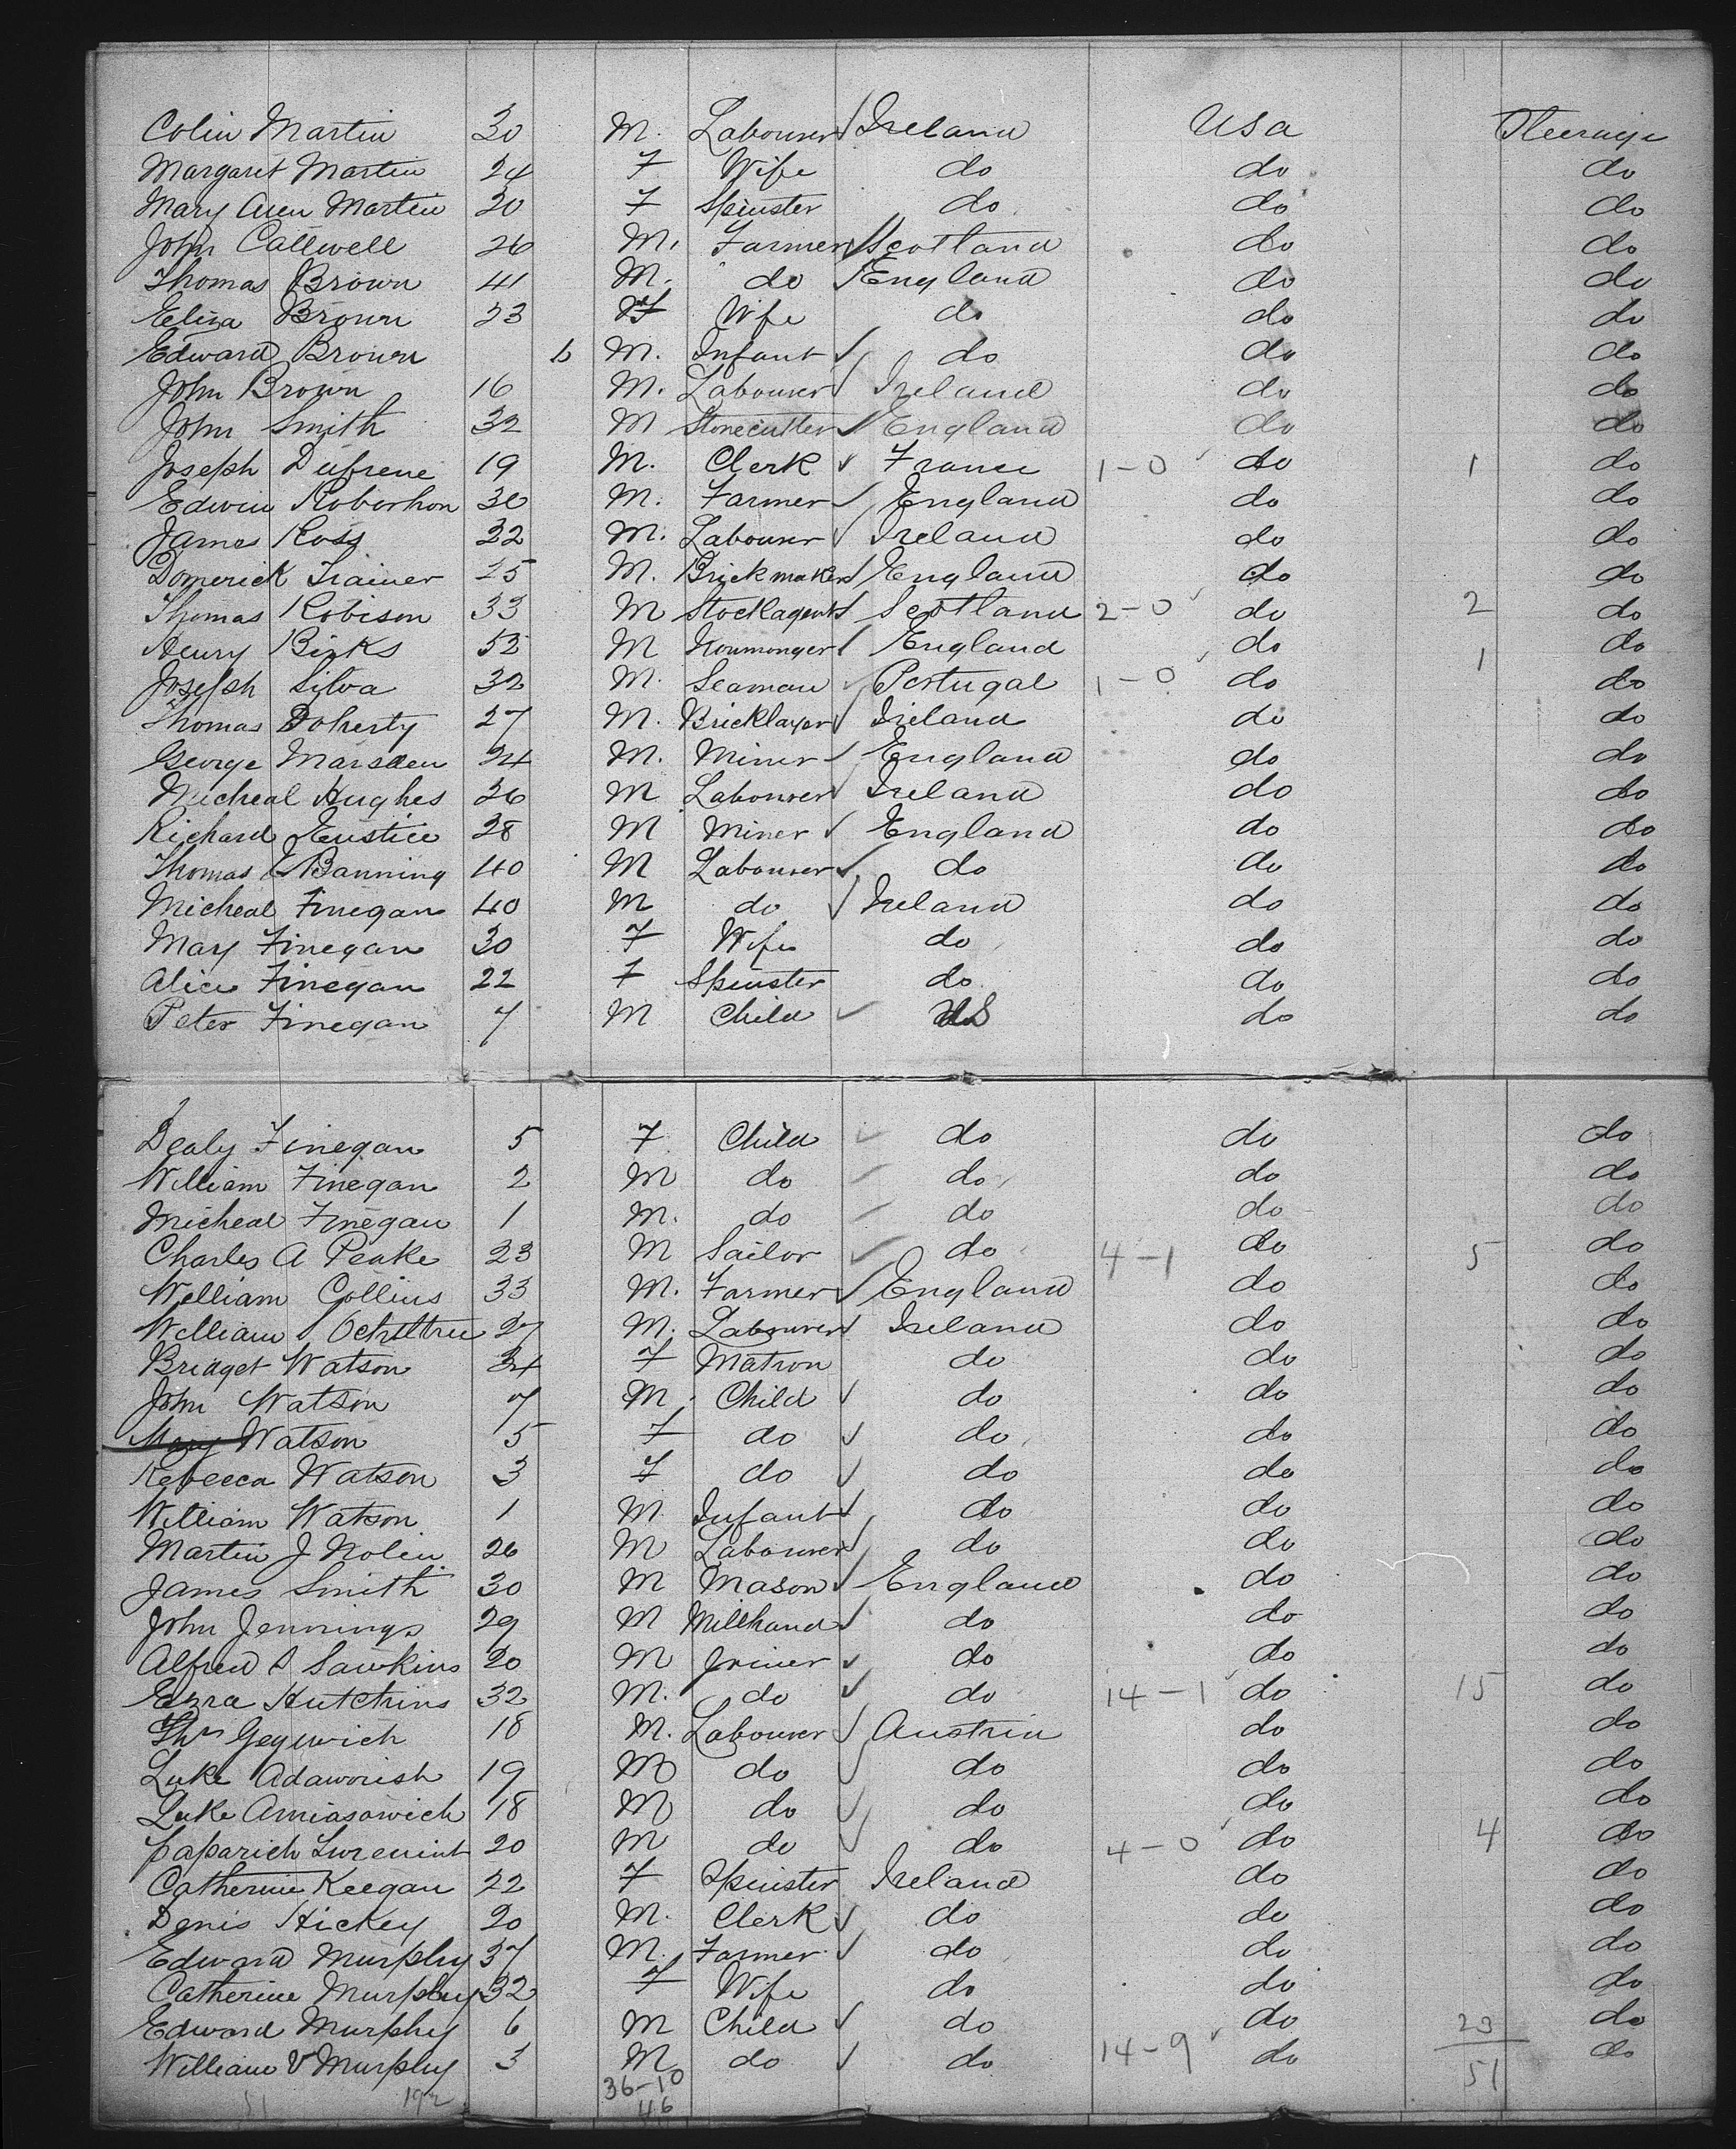 Colin Martin 30 M. Labourer √ Ireland USA Steerage
Margaret Martin 24 F Wife do do do
Mary Ann Martin 20 F Spinster do do do
John Callwell 26 M. Farmer √ Scotland do do
Thomas Brown 41 M. do √ England do do
Eliza Brown 23 F Wife do do do
Edward Brown 6 M. Infant √ do do do
John Brown 16 M. Labourer √ Ireland do do
John Smith 32 M Stonecutter √ England do do
Joseph Dufrene 19 M. Clerk √ France 1-0 √ do 1 do
Edwin Roborhon 30 M. Farmer √ England do do
James Ross 22 M. Labourer √ Ireland do do
Domerick Trainer 25 M. Brickmaker √ England do do
Thomas Robison 33 M Stockagent √ Scotland 2-0 √ do 2 do
Henry Birks 52 M Ironmonger √ England do do
Joseph Silva 32 M. Seaman √ Portugal 1-0 √ do 1 do
Thomas Doherty 27 M. Bricklayer √ Ireland do do
George Marsden 24 M. Miner √ England do do
Micheal Hughes 26 M Labourer √ Ireland do do
Richard Eustice 28 M Miner √ England do do
Thomas Banning 40 M Labourer √ do do do
Micheal Finegan 40 M do √ Ireland do do
Mary Finegan 30 F Wife do do do
Alice Finegan 22 F Spinster do do do
Peter Finegan 7 M Child √ US do do
Dealy Finegan 5 F Child √ do do do
William Finegan 2 M do √ do do do
Micheal Finegan 1 M. do √ do do do
Charles A Peake 23 M Sailor √ do 4-1 do 5 do
William Collins 33 M. Farmer √ England do do
William Ochiltree 27 M. Labourer √ Ireland do do
Bridget Watson 34 F Matron do do do
John Watson 7 M Child √ do do do
Mary Watson 5 F do √ do do do
Rebecca Watson 3 F do √ do do do
William Watson 1 M Infant √ do do do
Martin J Nolin 26 M Labourer √ do do do
James Smith 30 M Mason √ England do do
John Jennings 29 M Millhand √ do do do
Alfred S Sawkins 20 M Joiner √ do do do
Ezra Hutchins 32 M. do √ do 14-1 √ do 15 do
Thos 18 M. Labourer √ Austria do do
Luke Adaworish 19 M do √ do do do
Luke Amiasowich 18 M do √ do do do
20 M do √ do 4-0 √ do 4 do
Catherine Keegan 22 F Spinster Ireland do do
Denis Hickey 20 M. Clerk √ do do do
Edward Murphy 37 M. Farmer √ do do do
Catherine Murphy 32 F Wife do do do
Edward Murphy 6 M Child √ do do do
William V Murphy 3 M do √ do 14-9 √ do 23 do
51 192 36-10 51
46